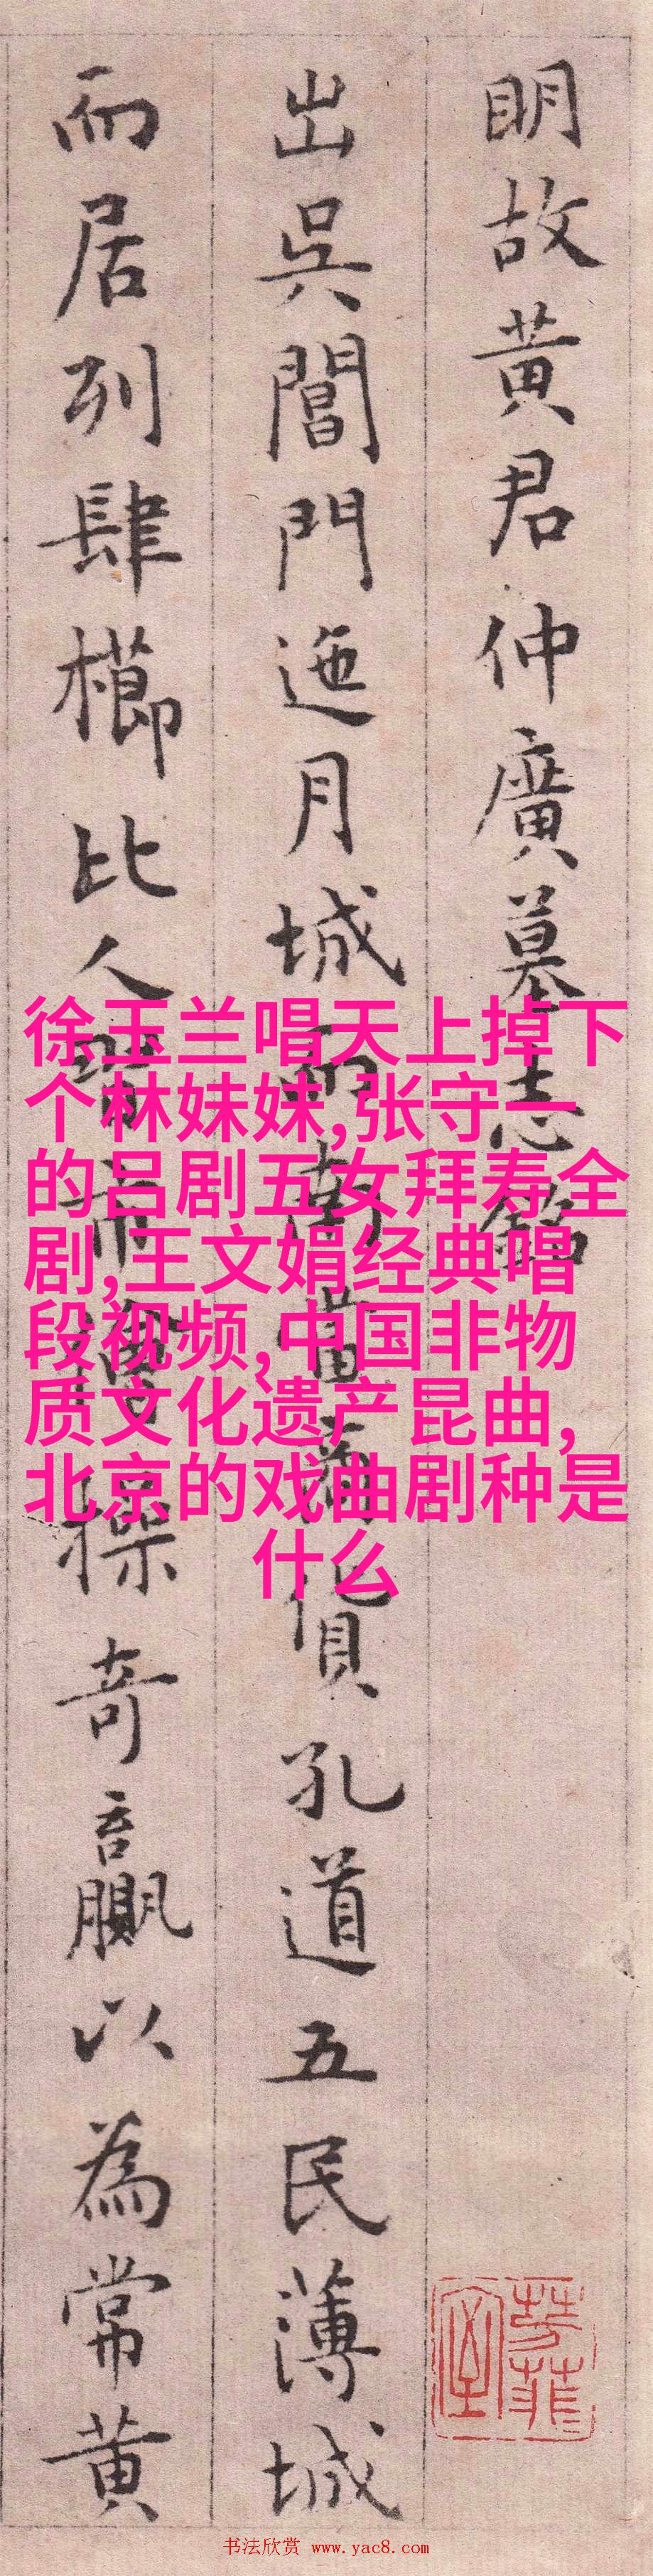 明故黄君仲廣墓志銘
出吳閶門迤月城而南當商賈孔道五民薄城
而居列肆櫛比人皆市儈操奇贏以為常黄
徐玉兰唱天上掉下
个林妹妹,张守一
的吕剧五女拜寿全
剧,王文娟经典唱
段视频,中国非物
质文化遗产昆曲,
北京的戏曲剧种是
什么
书法欣赏 www.yac8.com